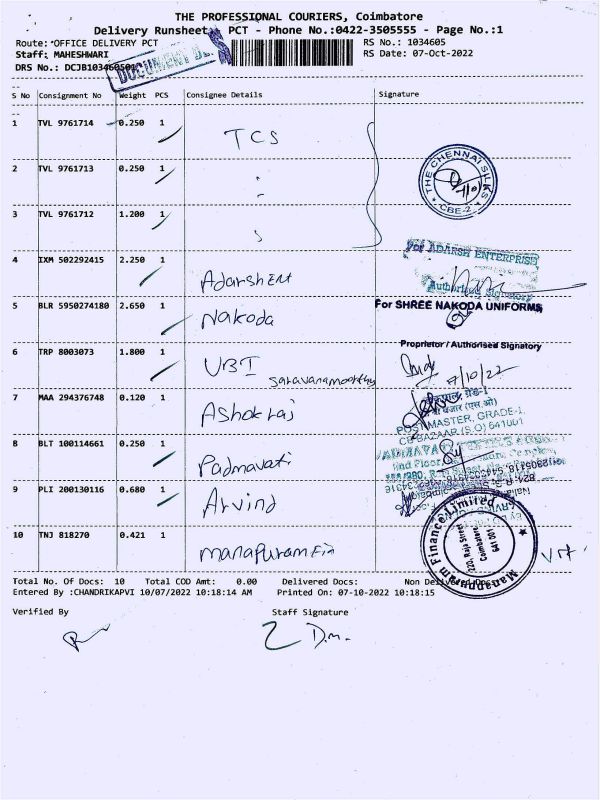 THE PROFESSIONAL COURIERS, Coimbatore
Delivery Runsheet PCT - Phone No.:0422-3505555 - Page No.:1
Route: OFFICE DELIVERY PCT RS No.: 1034605
Staff: MAHESHWARI RS Date: 07-Oct-2022
DRS No.: DCJB10346050
DOCUMENT
S No Consignment No Weight PCS Consignee Details Signature
1 TVL 9761714 0.250 1 TCS
2 TVL 9761713 0.250 1 "
THE CHENNAI SILKS
CBE-2
3 TVL 9761712 1.200 1
4 IXM 502292415 2.250 1 Adarsh Ent
For ADARSH ENTERPRISE
Authorised Signatory
5 BLR 5950274180 2.650 1 Nakoda
For SHREE NAKODA UNIFORMS
Proprietor / Authorised Signatory
6 TRP 8003073 1.800 1 UBI
saravanamoorthy
7/10/22
7 MAA 294376748 0.120 1 Ashok raj
POST MASTER, GRADE-1
CBE BAZAAR (S.O) 641001
8 BLT 100114661 0.250 1 Padmavati
9 PLI 200130116 0.680 1 Arvind
10 TNJ 818270 0.421 1 manapuram Fin
Manappuram Finance Limited
Coimbatore
641 001
Total No. Of Docs: 10 Total COD Amt: 0.00 Delivered Docs: Non Delivered Docs:
Entered By :CHANDRIKAPVI 10/07/2022 10:18:14 AM Printed On: 07-10-2022 10:18:15
Verified By Staff Signature